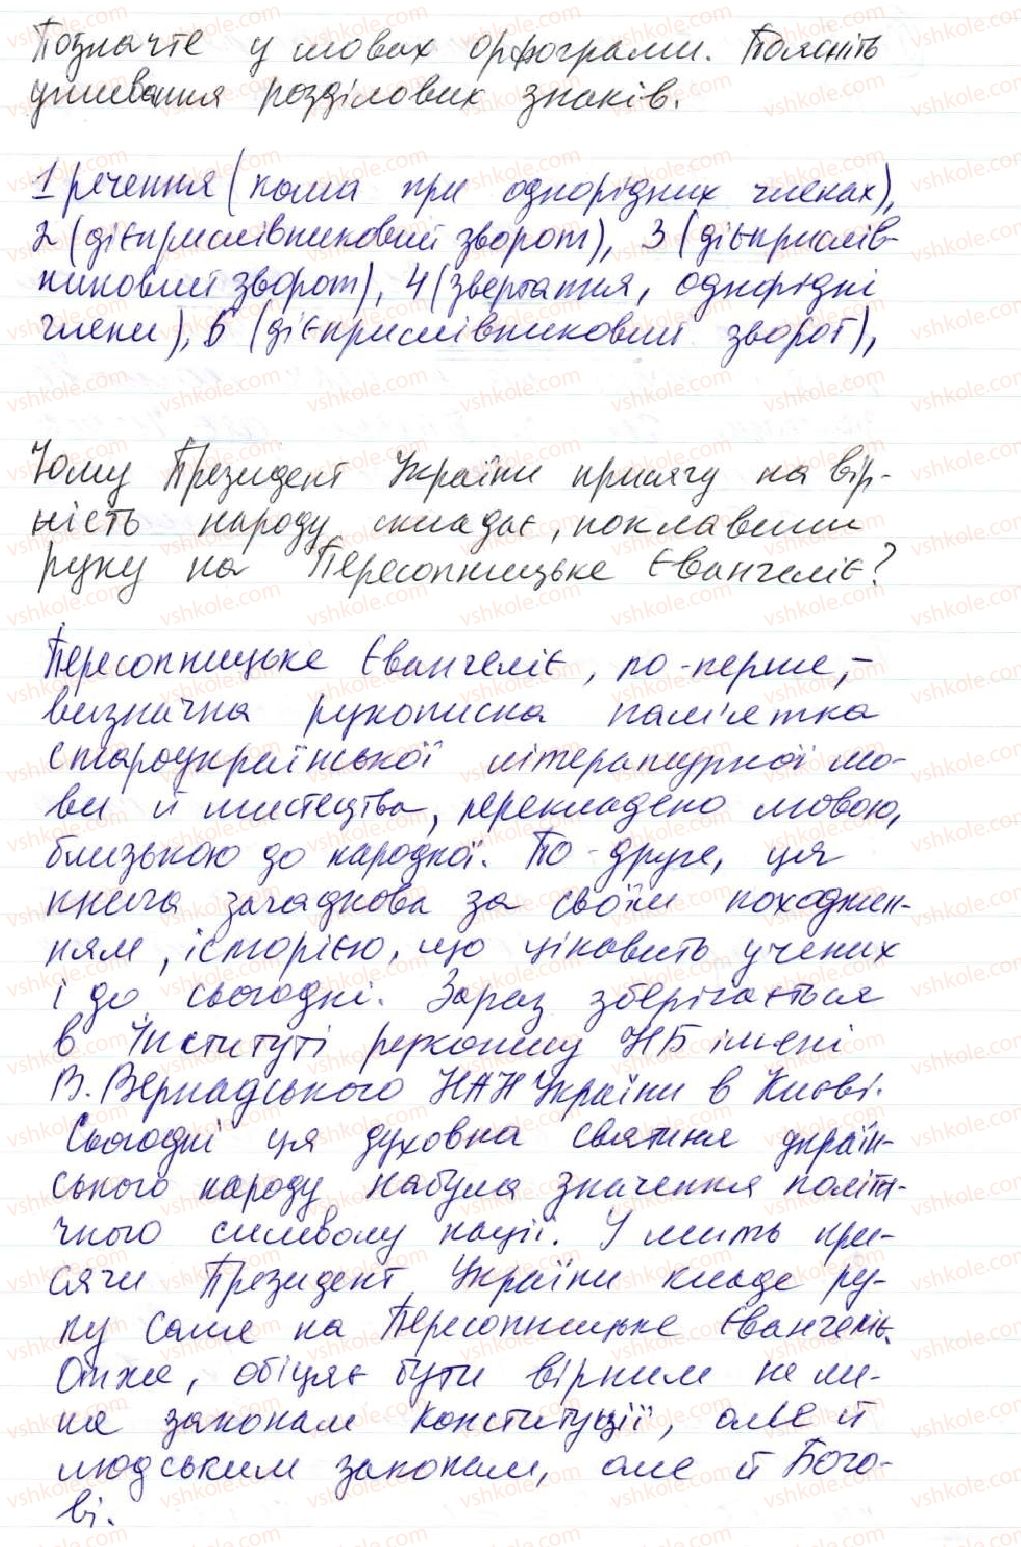 Позначте у словах орфограми. Поясніть
уживання розділових знаків.
1 речення (кома при однорідних членах),
2 (дієприслівниковий зворот), 3 (дієприслів-
никовий зворот), 4 (звертання, однорідні
члени), 5 (дієприслівниковий зворот),
Чому Президент України присягу на вір-
ність народу складає, поклавши
руку на Пересопницьке Євангеліє?
Пересопницьке Євангеліє, по-перше, –
визначна рукописна пам'ятка
староукраїнської літературної мо-
ви й мистецтва, перекладено мовою,
близькою до народної. По-друге, ця
книга загадкова за своїм походжен-
ням, історією, що цікавить учених
і до сьогодні. Зараз зберігається
в Інституті рукопису НБ імені
В. Вернадського НАН України в Києві.
Сьогодні ця духовна святиня україн-
ського народу набула значення політи-
чного символу нації. У мить при-
сяги Президент України кладе ру-
ку саме на Пересопницьке Євангеліє.
Отже, обіцяє бути вірним не ли-
ше законам Конституції, але й
людським законам, але й Бого-
ві.